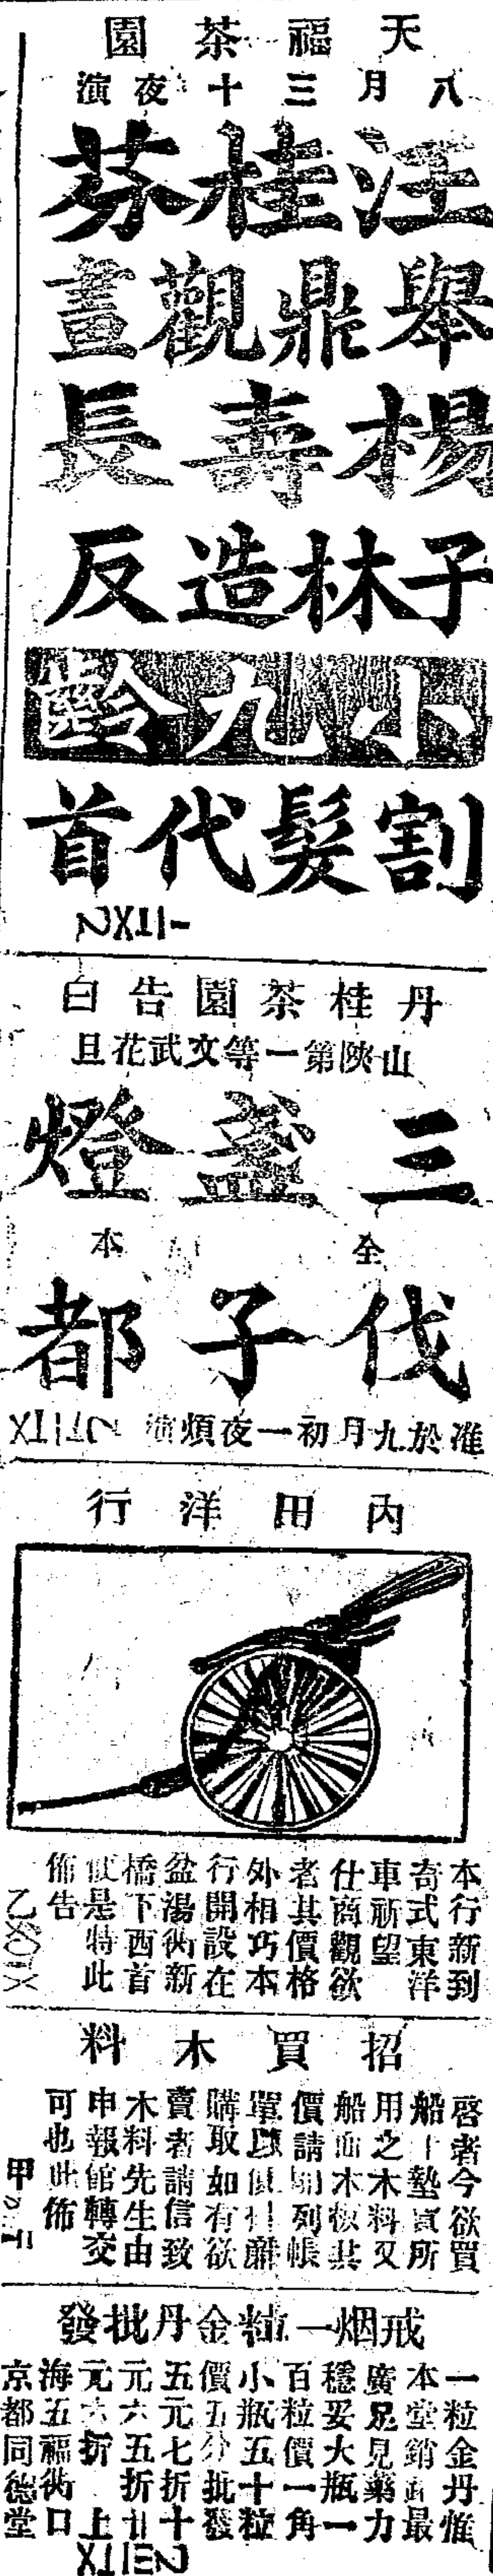 天福茶園
八月三十夜演
汪桂芬
舉鼎觀畫
楊壽長
子林造反
小九齡
割髮代首
丹桂茶園告白
山陝第一等文武花旦
三盞燈
全本
伐子都
准於九月初一夜煩演
內田洋行
本行新到
奇式東洋
車祈望
仕商觀欲
者其價格
外相巧本
行開設在
盆湯衖新
橋下西首
便是特此
佈告
招買木料
啓者今欲買
船上墊貨所
用之木料又
船面木板其
價請開列帳
單以便擇廉
購取如有欲
賣者請信致
木料先生由
申報館轉交
可也此佈
甲
戒烟一粒金丹批發
一粒金丹惟
本堂銷路最
廣足見藥力
穩妥大瓶一
百粒價一角
小瓶五十粒
價五分批發
五元七折十
元六五折廿
元六折 上
海五福衖口
京都同德堂